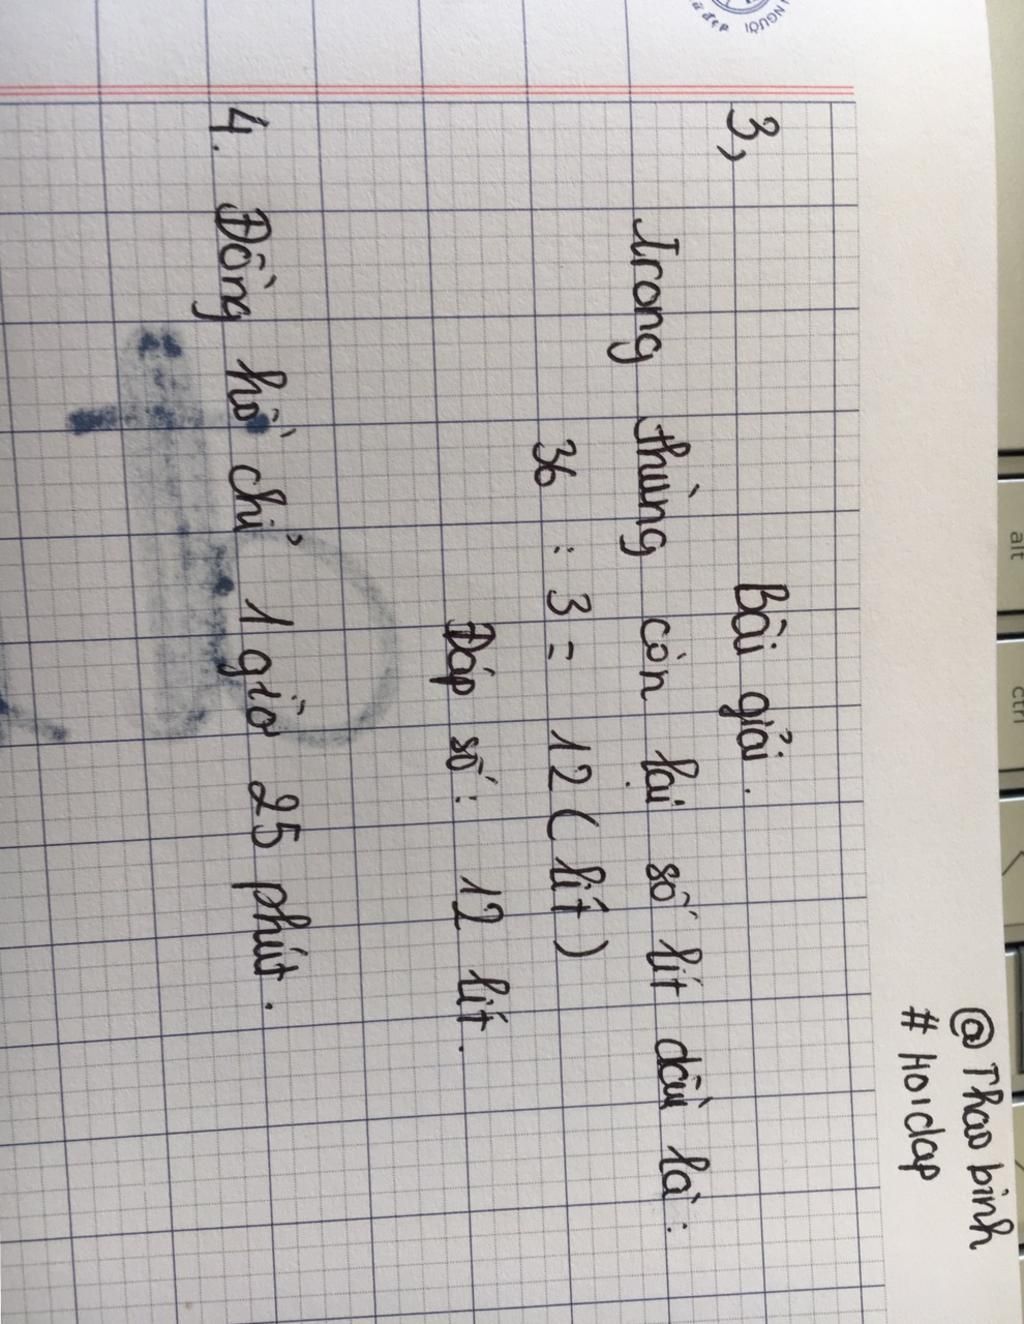 @ Thao binh
# Hoidap
3, Bài giải.
Trong thùng còn lại số lít dầu là:
36 : 3 = 12 ( lít )
Đáp số: 12 lít.
4. Đồng hồ chỉ 1 giờ 25 phút.
NGƯỜI
alt
ctrl